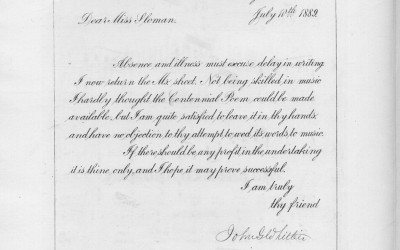 July 10th 1882.
Dear Miss Sloman.
Absence and illness must excuse delay in writing
I now return the Mx shed. Not being skilled, in music
I hardly thought the Centennial Poem could be made
available, but I am quite satisfied to leave it in thy hands
and have no objection to thy attempt to wed its words to music.
If there should be any profit in the undertaking
it is thine, only, and I hope, it may prove successful.
I am, truly
thy friend